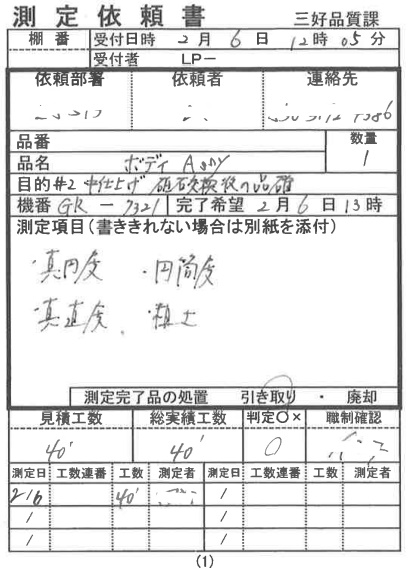 測定依頼書 三好品質課
棚番 受付日時 2月6日 12時05分
受付者 LP-
依頼部署 依頼者 連絡先
品番 数量
品名 ボディ Assy 1
目的 #2 中仕上げ 砥石交換後の品確
機番 GR-7321 完了希望 2月6日13時
測定項目(書ききれない場合は別紙を添付)
・真円度 ・円筒度
・真直度 ・粗さ
測定完了品の処置 引き取り ・ 廃却
見積工数 総実績工数 判定○× 職制確認
40' 40' ○
測定日 工数連番 工数 測定者 測定日 工数連番 工数 測定者
2/6 40' /
/ /
/ /
(1)